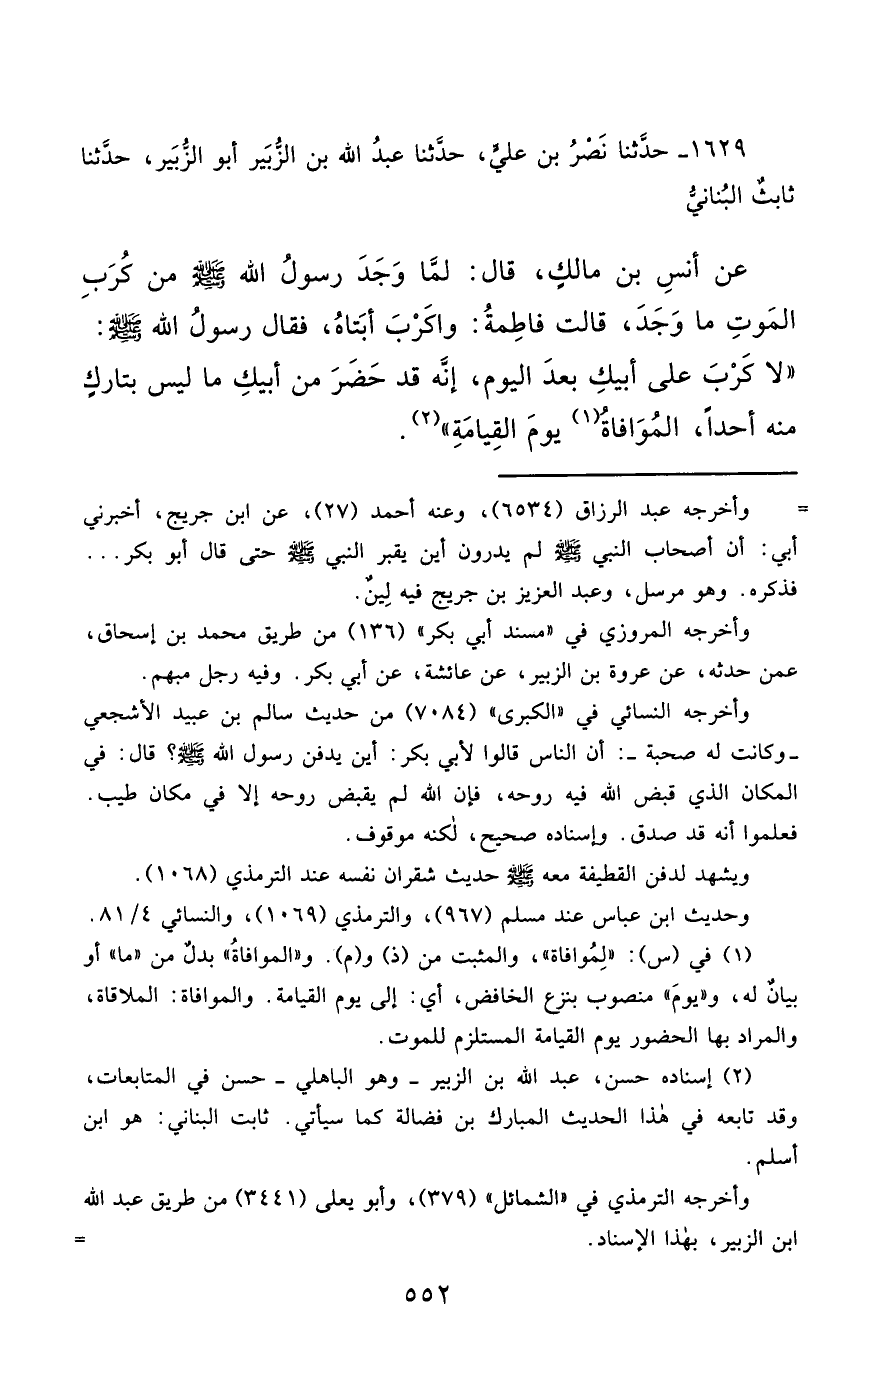 ١٦٢٩ـ حدَّثنا نَصْرُ بن عليٍّ، حدَّثنا عبدُ الله بن الزُّبَير أبو الزُّبَير، حدَّثنا
ثابتٌ البُنانيُّ
عن أنسِ بن مالكٍ، قال: لمَّا وَجَدَ رسولُ الله ﷺ من كُرَبِ
المَوتِ ما وَجَدَ، قالت فاطِمةُ: واكَرْبَ أبَتاهُ، فقال رسولُ الله ﷺ:
«لا كَرْبَ على أبيكِ بعدَ اليوم، إنَّه قد حَضَرَ من أبيكِ ما ليس بتاركٍ
منه أحداً، المُوَافاةُ(١) يومَ القِيامَةِ»(٢).
= وأخرجه عبد الرزاق (٦٥٣٤)، وعنه أحمد (٢٧)، عن ابن جريج، أخبرني
أبي: أن أصحاب النبي ﷺ لم يدرون أين يقبر النبي ﷺ حتى قال أبو بكر...
فذكره. وهو مرسل، وعبد العزيز بن جريج فيه لِينٌ.
وأخرجه المروزي في «مسند أبي بكر» (١٣٦) من طريق محمد بن إسحاق،
عمن حدثه، عن عروة بن الزبير، عن عائشة، عن أبي بكر. وفيه رجل مبهم.
وأخرجه النسائي في «الكبرى» (٧٠٨٤) من حديث سالم بن عبيد الأشجعي
ـ وكانت له صحبة ـ: أن الناس قالوا لأبي بكر: أين يدفن رسول الله ﷺ؟ قال: في
المكان الذي قبض الله فيه روحه، فإن الله لم يقبض روحه إلا في مكان طيب.
فعلموا أنه قد صدق. وإسناده صحيح، لٰكنه موقوف.
ويشهد لدفن القطيفة معه ﷺ حديث شقران نفسه عند الترمذي (١٠٦٨).
وحديث ابن عباس عند مسلم (٩٦٧)، والترمذي (١٠٦٩)، والنسائي ٤/ ٨١.
(١) في (س): «لِمُوافاة»، والمثبت من (ذ) و(م). و«الموافاةُ» بدلٌ من «ما» أو
بيانٌ له، و«يومَ» منصوب بنزع الخافض، أي: إلى يوم القيامة. والموافاة: الملاقاة،
والمراد بها الحضور يوم القيامة المستلزم للموت.
(٢) إسناده حسن، عبد الله بن الزبير ـ وهو الباهلي ـ حسن في المتابعات،
وقد تابعه في هٰذا الحديث المبارك بن فضالة كما سيأتي. ثابت البناني: هو ابن
أسلم.
وأخرجه الترمذي في «الشمائل» (٣٧٩)، وأبو يعلى (٣٤٤١) من طريق عبد الله
ابن الزبير، بهٰذا الإسناد. =
٥٥٢